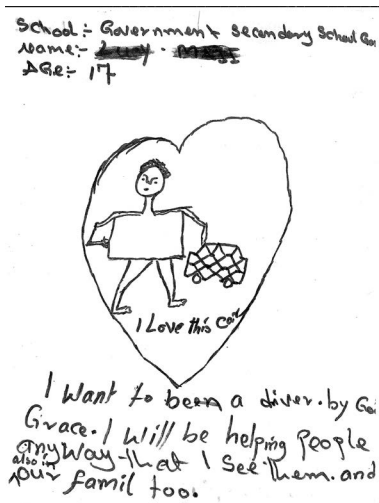 School:- Government Secondary School
Name:-
AGe:- 17
I Love this Car
I Want to been a diver. by
Grace. I Will be helping People
any way that I See them. and
also in
our famil too.